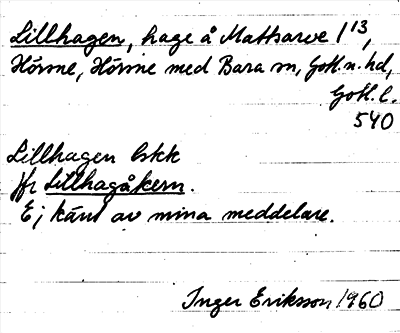 Lillhagen, hage å Mattsarve 1¹³,
Hörsne, Hörsne med Bara sn, Gotl. n. hd,
Gotl. l.
540
Lillhagen lskk
jfr Lillhagåkern.
Ej känt av mina meddelare.
Inger Eriksson 1960